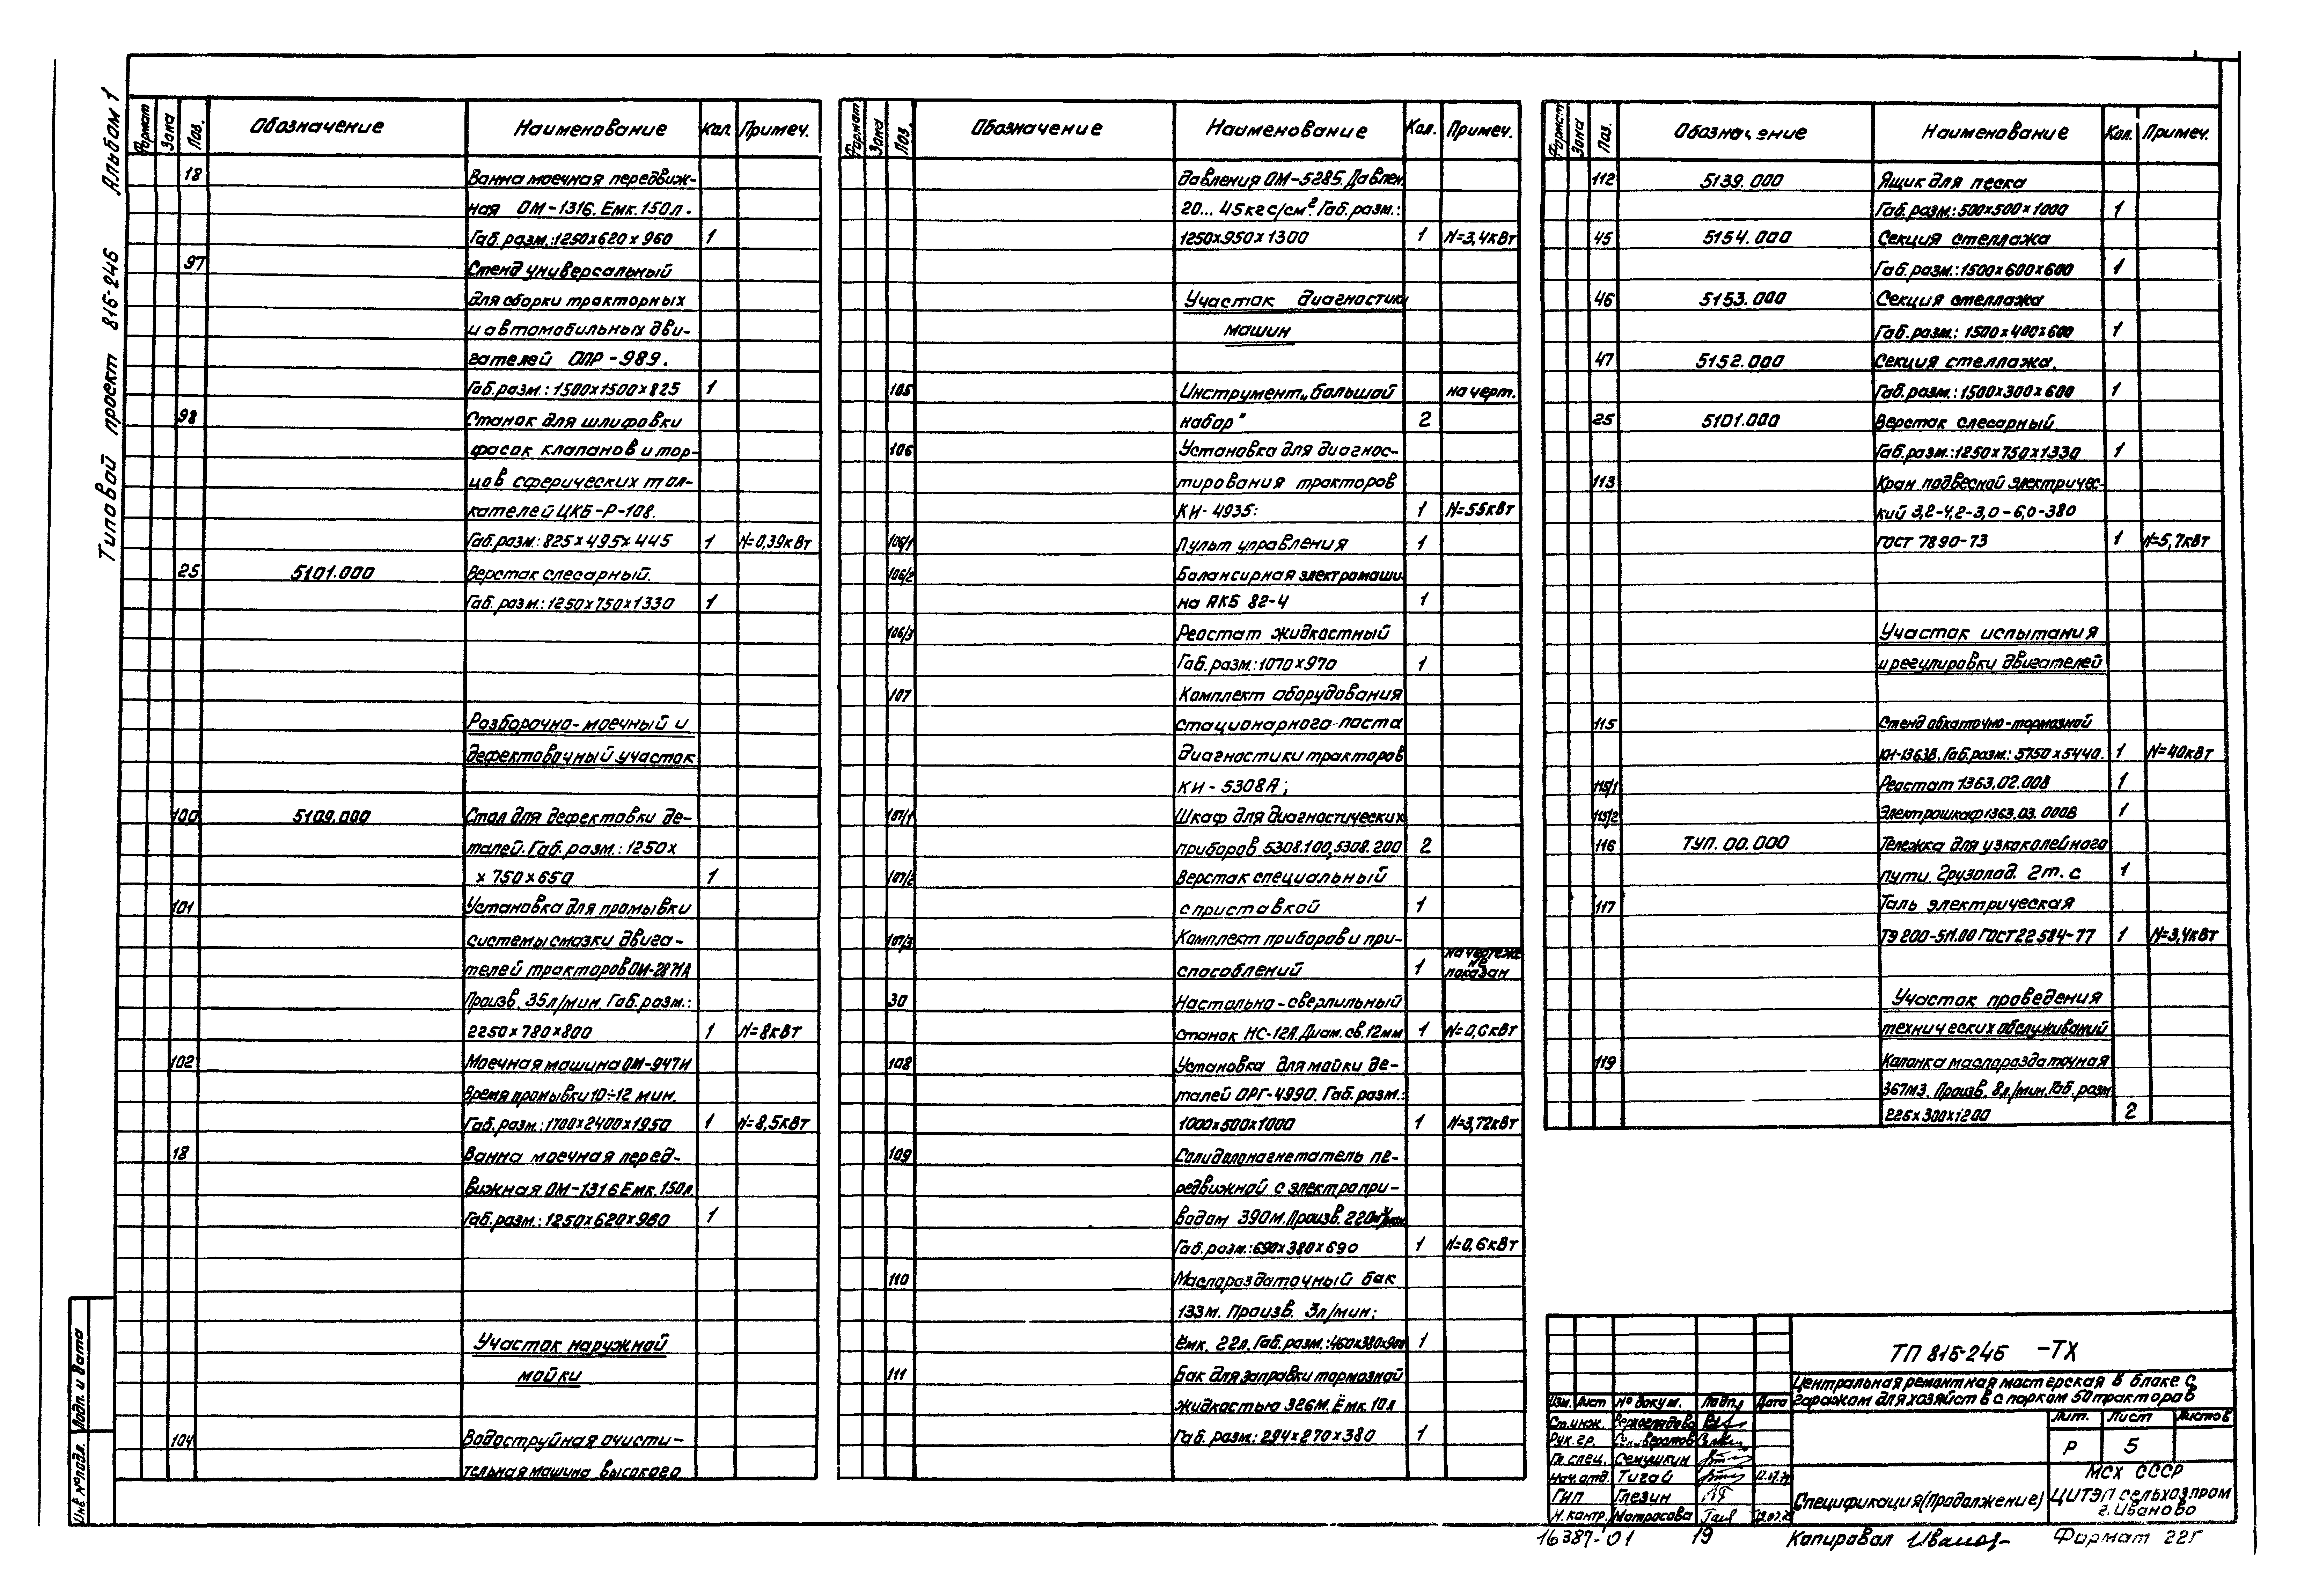 Типовой проект 816-246 Альбом 1
Формат Зона Поз. Обозначение Наименование Кол Примеч.
18 Ванна моечная передвиж-
ная ОМ-1316. Емк. 150л.
Габ. разм.: 1250х620х960 1
97 Стенд универсальный
для сборки тракторных
и автомобильных дви-
гателей ОПР-989.
Габ. разм.: 1500х1500х825 1
98 Станок для шлифовки
фасок клапанов и тор-
цов сферических тол-
кателей ЦКБ-Р-108.
Габ. разм: 825х495х445 1 N=0,39кВт
25 5101.000 Верстак слесарный.
Габ. разм.: 1250х750х1330 1
Разборочно-моечный и
дефектовочный участок
100 5109.000 Стол для дефектовки де-
талей. Габ. разм.: 1250х
х750х650 1
101 Установка для промывки
системы смазки двига-
телей тракторов ОМ-2871А
Произв. 35л/мин. Габ. разм.:
2250х780х800 1 N=8кВт
102 Моечная машина ОМ-947И
Время промывки 10÷12 мин.
Габ. разм.: 1700х2400х1950 1 N=8,5кВт
18 Ванна моечная перед-
вижная ОМ-1316 Емк. 150л.
Габ. разм.: 1250х620х960 1
Участок наружной
мойки
104 Водоструйная очисти-
тельная машина высокого
Формат Зона Поз. Обозначение Наименование Кол. Примеч.
давления ОМ-5285. Давлен.
20...45кгс/см². Габ. разм.:
1250х950х1300 1 N=3,4кВт
Участок диагностики
машин
105 Инструмент „большой на черт.
набор" 2
106 Установка для диагнос-
тирования тракторов
КИ-4935: 1 N=55кВт
106/1 Пульт управления 1
106/2 Балансирная электромаши-
на АКБ 82-4 1
106/3 Реостат жидкостный
Габ. разм.: 1070х970 1
107 Комплект оборудования
стационарного поста
диагностики тракторов
КИ-5308А;
107/1 Шкаф для диагностических
приборов 5308.100, 5308.200 2
107/2 Верстак специальный
с приставкой 1
107/3 Комплект приборов и при-
способлений 1 на чертеже не показан
30 Настольно-сверлильный
станок НС-12А. Диам. св. 12мм 1 N=0,6кВт
108 Установка для мойки де-
талей ОРГ-4990. Габ. разм.:
1000х500х1000 1 N=3,72кВт
109 Солидолонагнетатель пе-
редвижной с электропри-
водом 390М. Произв. 220
Габ. разм.: 690х380х690 1 N=0,6кВт
110 Маслораздаточный бак
133М. Произв. 3л/мин;
Ёмк. 22л. Габ. разм.: 460х380х900 1
111 Бак для заправки тормозной
жидкостью 326М. Ёмк. 10л
Габ. разм.: 294х270х380 1
Формат Зона Поз. Обозначение Наименование Кол. Примеч.
112 5139.000 Ящик для песка
Габ. разм.: 500х500х1000 1
45 5154.000 Секция стеллажа
Габ. разм.: 1500х600х600 1
46 5153.000 Секция стеллажа
Габ. разм.: 1500х400х600 1
47 5152.000 Секция стеллажа.
Габ. разм.: 1500х300х600 1
25 5101.000 Верстак слесарный.
Габ. разм.: 1250х750х1330 1
113 Кран подвесной электричес-
кий 3,2-4,2-3,0-6,0-380
ГОСТ 7890-73 1 N=5,7кВт
Участок испытания
и регулировки двигателей
115 Стенд обкаточно-тормозной
КИ-1363В. Габ. разм.: 5750х5440. 1 N=40кВт
115/1 Реостат 1363.02.00В 1
115/2 Электрошкаф 1363.03.000В 1
116 ТУП.00.000 Тележка для узкоколейного
пути. Грузопод. 2т.с 1
117 Таль электрическая
ТЭ 200-511.00 ГОСТ 22584-77 1 N=3,4кВт
Участок проведения
технических обслуживаний
119 Колонка маслораздаточная
367М3. Произв. 8л/мин. Габ. разм
225х300х1200 2
ТП 816-246 -ТХ
Центральная ремонтная мастерская в блоке с
гаражом для хозяйств с парком 50 тракторов
Изм. Лист № докум. Подп. Дата
Ст. инж. Верхоглядова
Рук. гр.
Гл. спец. Семушкин
Нач. отд. Тигай
ГИП Глезин
Н. контр. Матросова
Лит. Лист Листов
Р 5
Спецификация (Продолжение)
МСХ СССР
ЦИТЭП сельхозпром
г. Иваново
Инв № подл. Подп. и дата
16387-01 19 Копировал Формат 22Г